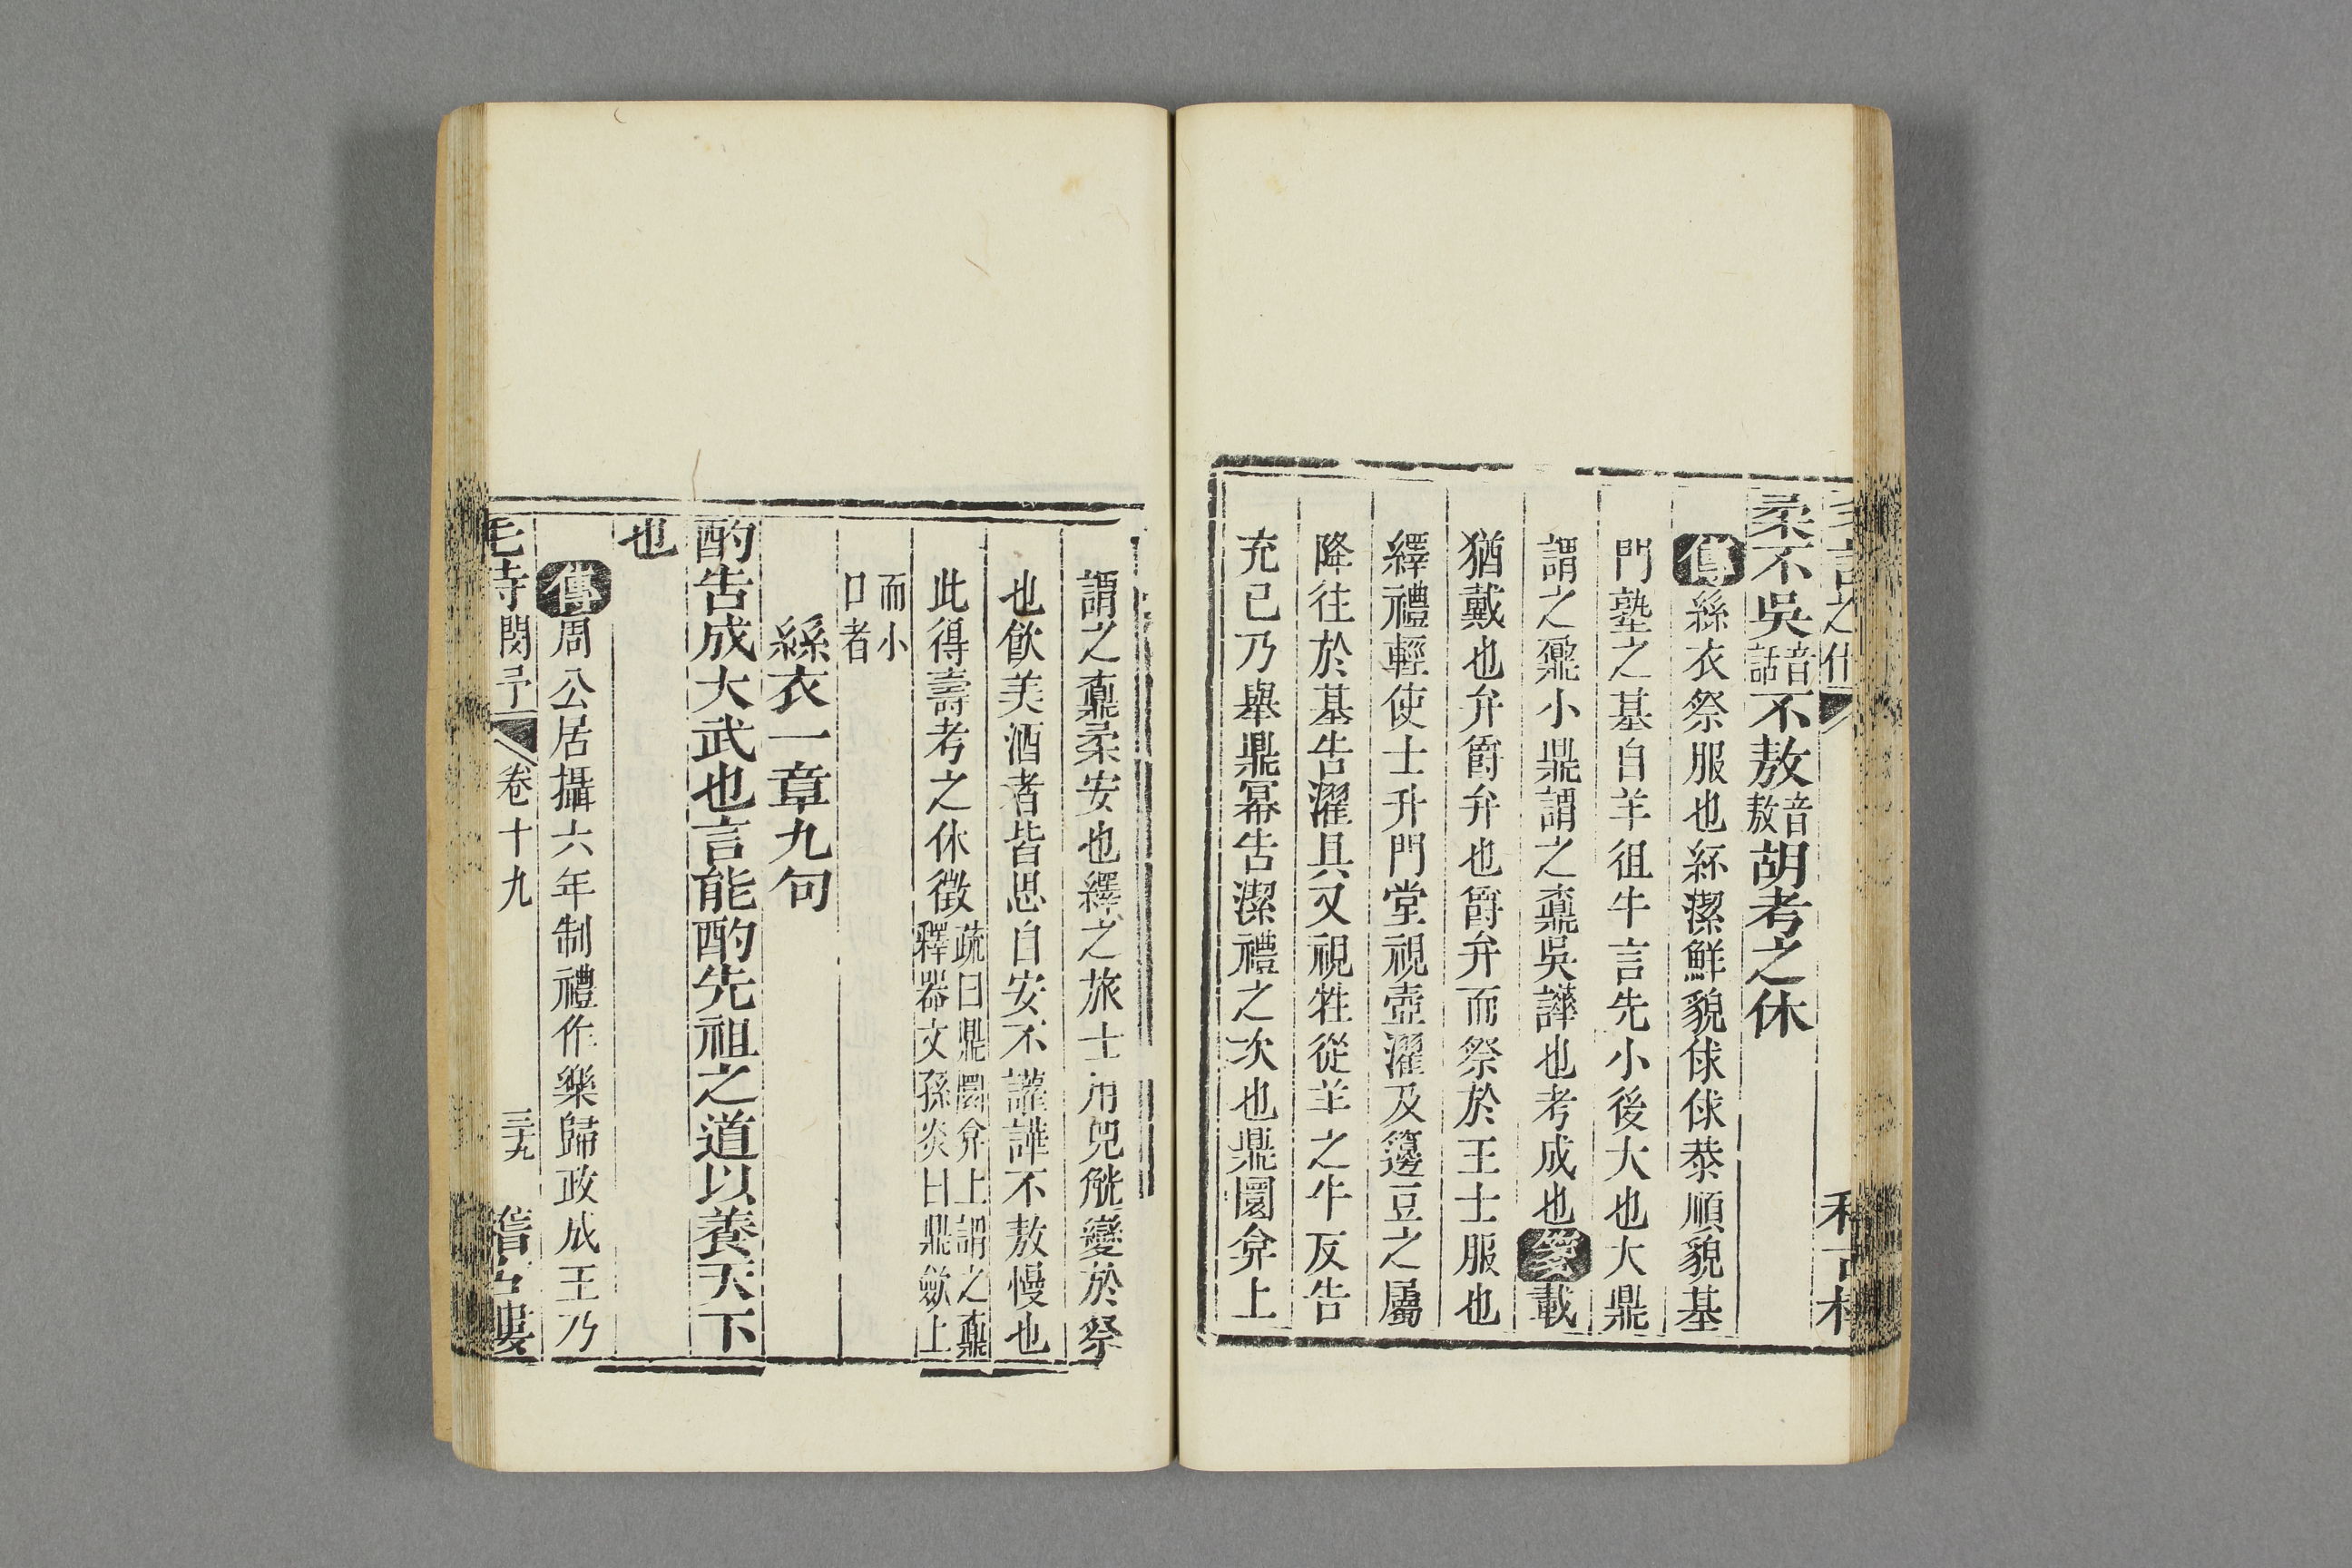 柔不吳音話不敖音敖胡考之休
傳絲衣祭服也紑潔鮮貌俅俅恭順貌基
門塾之基自羊徂牛言先小後大也大鼎
謂之鼐小鼎謂之鼒吳譁也考成也箋載
猶戴也弁爵弁也爵弁而祭於王士服也
繹禮輕使士升門堂視壺濯及籩豆之屬
降往於基告濯具又視牲從羊之牛反告
充已乃舉鼎冪告潔禮之次也鼎圜弇上
謂之鼒柔安也繹之旅士用兕觥變於祭
也飲美酒者皆思自安不讙譁不敖慢也
此得壽考之休徵疏曰鼎圜弇上謂之鼒
釋器文孫炎曰鼎斂上
而小
口者
絲衣一章九句
酌告成大武也言能酌先祖之道以養天下
也
傳周公居攝六年制禮作樂歸政成王乃
毛詩閔予 卷十九 三十九